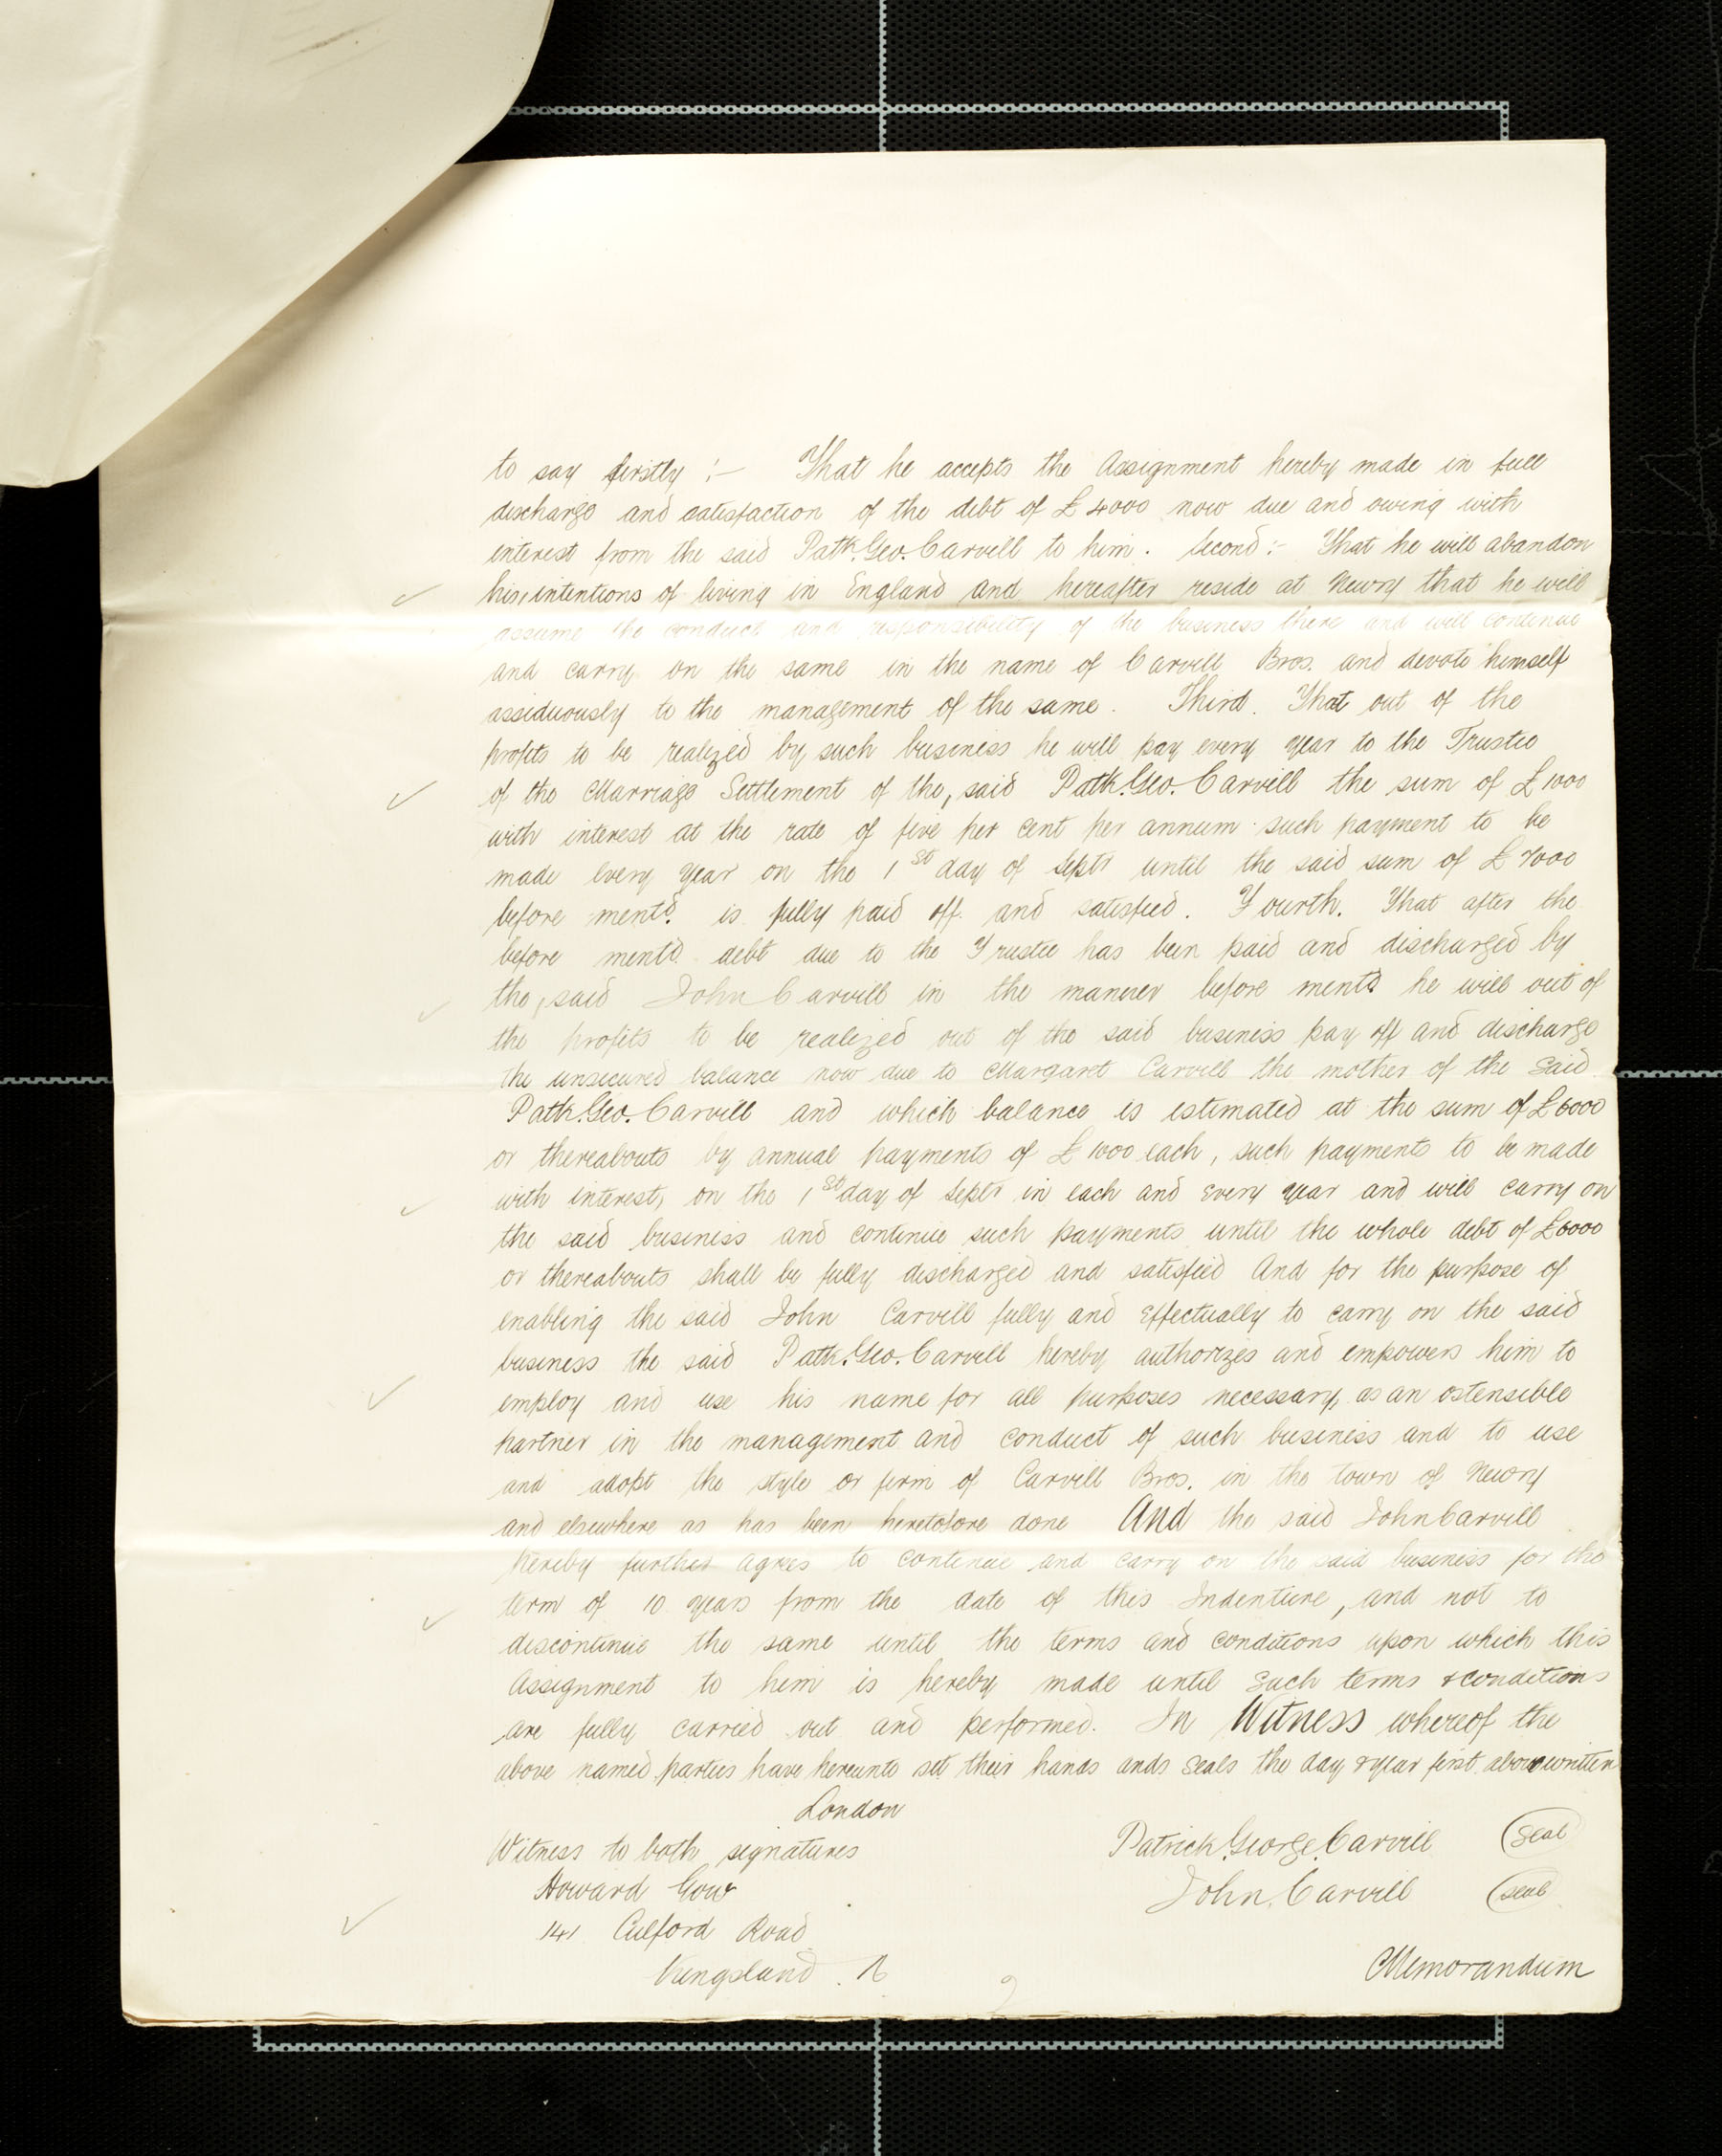 to say firstly :- That he accepts the Assignment hereby made in full
discharge and satisfaction of the debt of £4000 now due and owing with
interest from the said Patk. Geo. Carvill to him. Second :- That he will abandon
his intentions of living in England and hereafter reside at Newry that he will
assume the conduct and responsibility of the business there and will continue
and carry on the same in the name of Carvill Bros. and devote himself
assiduously to the management of the same. Third. That out of the
profits to be realized by such business he will pay every year to the Trustee
of the Marriage Settlement of the, said Patk. Geo. Carvill the sum of £1000
with interest at the rate of five per cent per annum such payment to be
made every year on the 1st day of Septr until the said sum of £7000
before mentd. is fully paid off and satisfied. Fourth. That after the
before mentd. debt due to the Trustee has been paid and discharged by
the, said John Carvill in the manner before mentd he will out of
the profits to be realized out of the said business pay off and discharge
the unsecured balance now due to Margaret Carvill the mother of the said
Patk. Geo. Carvill and which balance is estimated at the sum of £6000
or thereabouts by annual payments of £1000 each, such payments to be made
with interest, on the 1st day of Septr in each and every year and will carry on
the said business and continue such payments until the whole debt of £6000
or thereabouts shall be fully discharged and satisfied And for the purpose of
enabling the said John Carvill fully and effectually to carry on the said
business the said Patk. Geo. Carvill hereby authorizes and empowers him to
employ and use his name for all purposes necessary, as an ostensible
partner in the management and conduct of such business and to use
and adopt the style or firm of Carvill Bros. in the town of Newry
and elsewhere as has been heretofore done And the said John Carvill
hereby further agrees to continue and carry on the said business for the
term of 10 years from the date of this Indenture, and not to
discontinue the same until the terms and conditions upon which this
Assignment to him is hereby made until such terms & conditions
are fully carried out and performed. In Witness whereof the
above named parties have hereunto set their hands ands seals the day & year first above written
London
Witness to both signatures
Patrick George Carvill Seal
Howard Gow
John Carvill Seal
141 Culford Road
Kingsland. N
Memorandum
2